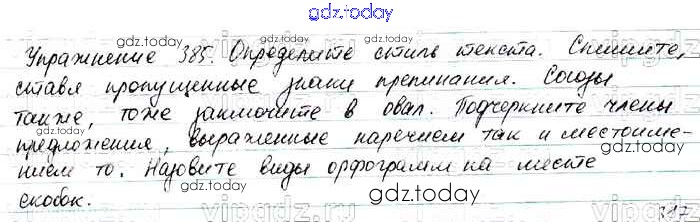 gdz.today
Упражнение 385. Определите стиль текста. Спишите,
gdz.today gdz.today
ставя пропущенные знаки препинания. Союзы
также, тоже заключите в овал. Подчеркните члены
gdz.today gdz.today
предложения, выраженные наречием так и местоиме-
нием то. Назовите виды орфограмм на месте
gdz.today
скобок.
gdz.today